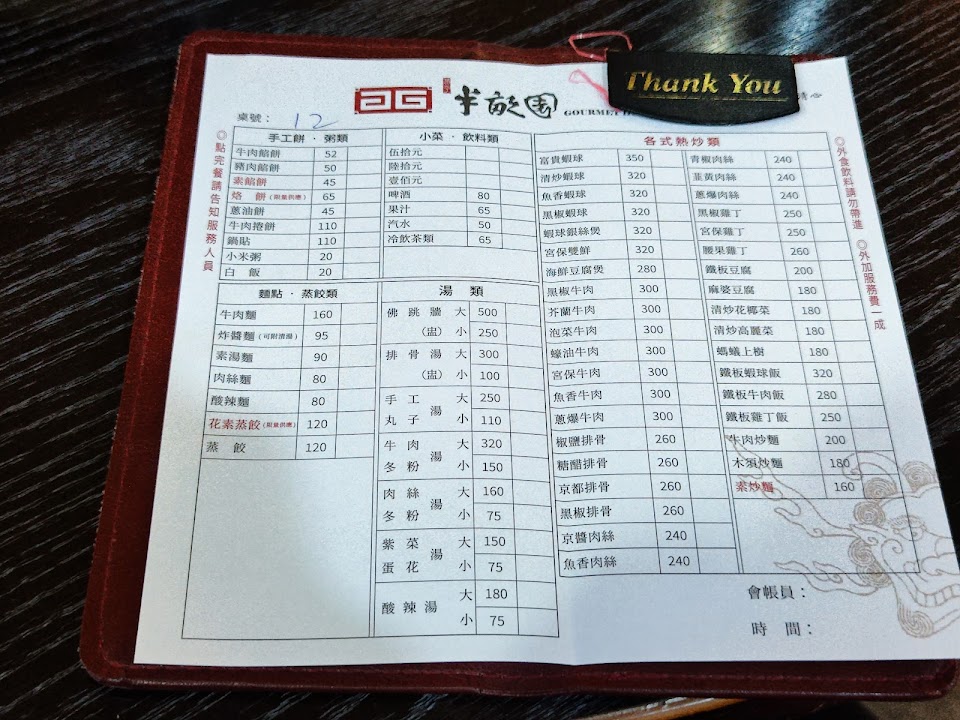 Thank You
半畝園
GOURMET
桌號： 12
◎點完餐請告知服務人員
手工餅．粥類
牛肉餡餅 52
豬肉餡餅 50
素餡餅 45
烙 餅(限量供應) 65
蔥油餅 45
牛肉捲餅 110
鍋貼 110
小米粥 20
白 飯 20
小菜．飲料類
伍拾元
陸拾元
壹佰元
啤酒 80
果汁 65
汽水 50
冷飲茶類 65
麵點．蒸餃類
牛肉麵 160
炸醬麵(可附清湯) 95
素湯麵 90
肉絲麵 80
酸辣麵 80
花素蒸餃(限量供應) 120
蒸 餃 120
湯 類
佛跳牆 大 500
(盅) 小 250
排骨湯 大 300
(盅) 小 100
手工丸子湯 大 250
小 110
牛肉冬粉湯 大 320
小 150
肉絲冬粉湯 大 160
小 75
紫菜蛋花湯 大 150
小 75
酸辣湯 大 180
小 75
各式熱炒類
富貴蝦球 350
清炒蝦球 320
魚香蝦球 320
黑椒蝦球 320
蝦球銀絲煲 320
宮保雙鮮 320
海鮮豆腐煲 280
黑椒牛肉 300
芥蘭牛肉 300
泡菜牛肉 300
蠔油牛肉 300
宮保牛肉 300
魚香牛肉 300
蔥爆牛肉 300
椒鹽排骨 260
糖醋排骨 260
京都排骨 260
黑椒排骨 260
京醬肉絲 240
魚香肉絲 240
青椒肉絲 240
韮黃肉絲 240
蔥爆肉絲 240
黑椒雞丁 250
宮保雞丁 250
腰果雞丁 260
鐵板豆腐 200
麻婆豆腐 180
清炒花椰菜 180
清炒高麗菜 180
螞蟻上樹 180
鐵板蝦球飯 320
鐵板牛肉飯 280
鐵板雞丁飯 250
牛肉炒麵 200
木須炒麵 180
素炒麵 160
◎外食飲料請勿帶進 ◎外加服務費一成
會帳員：
時 間：